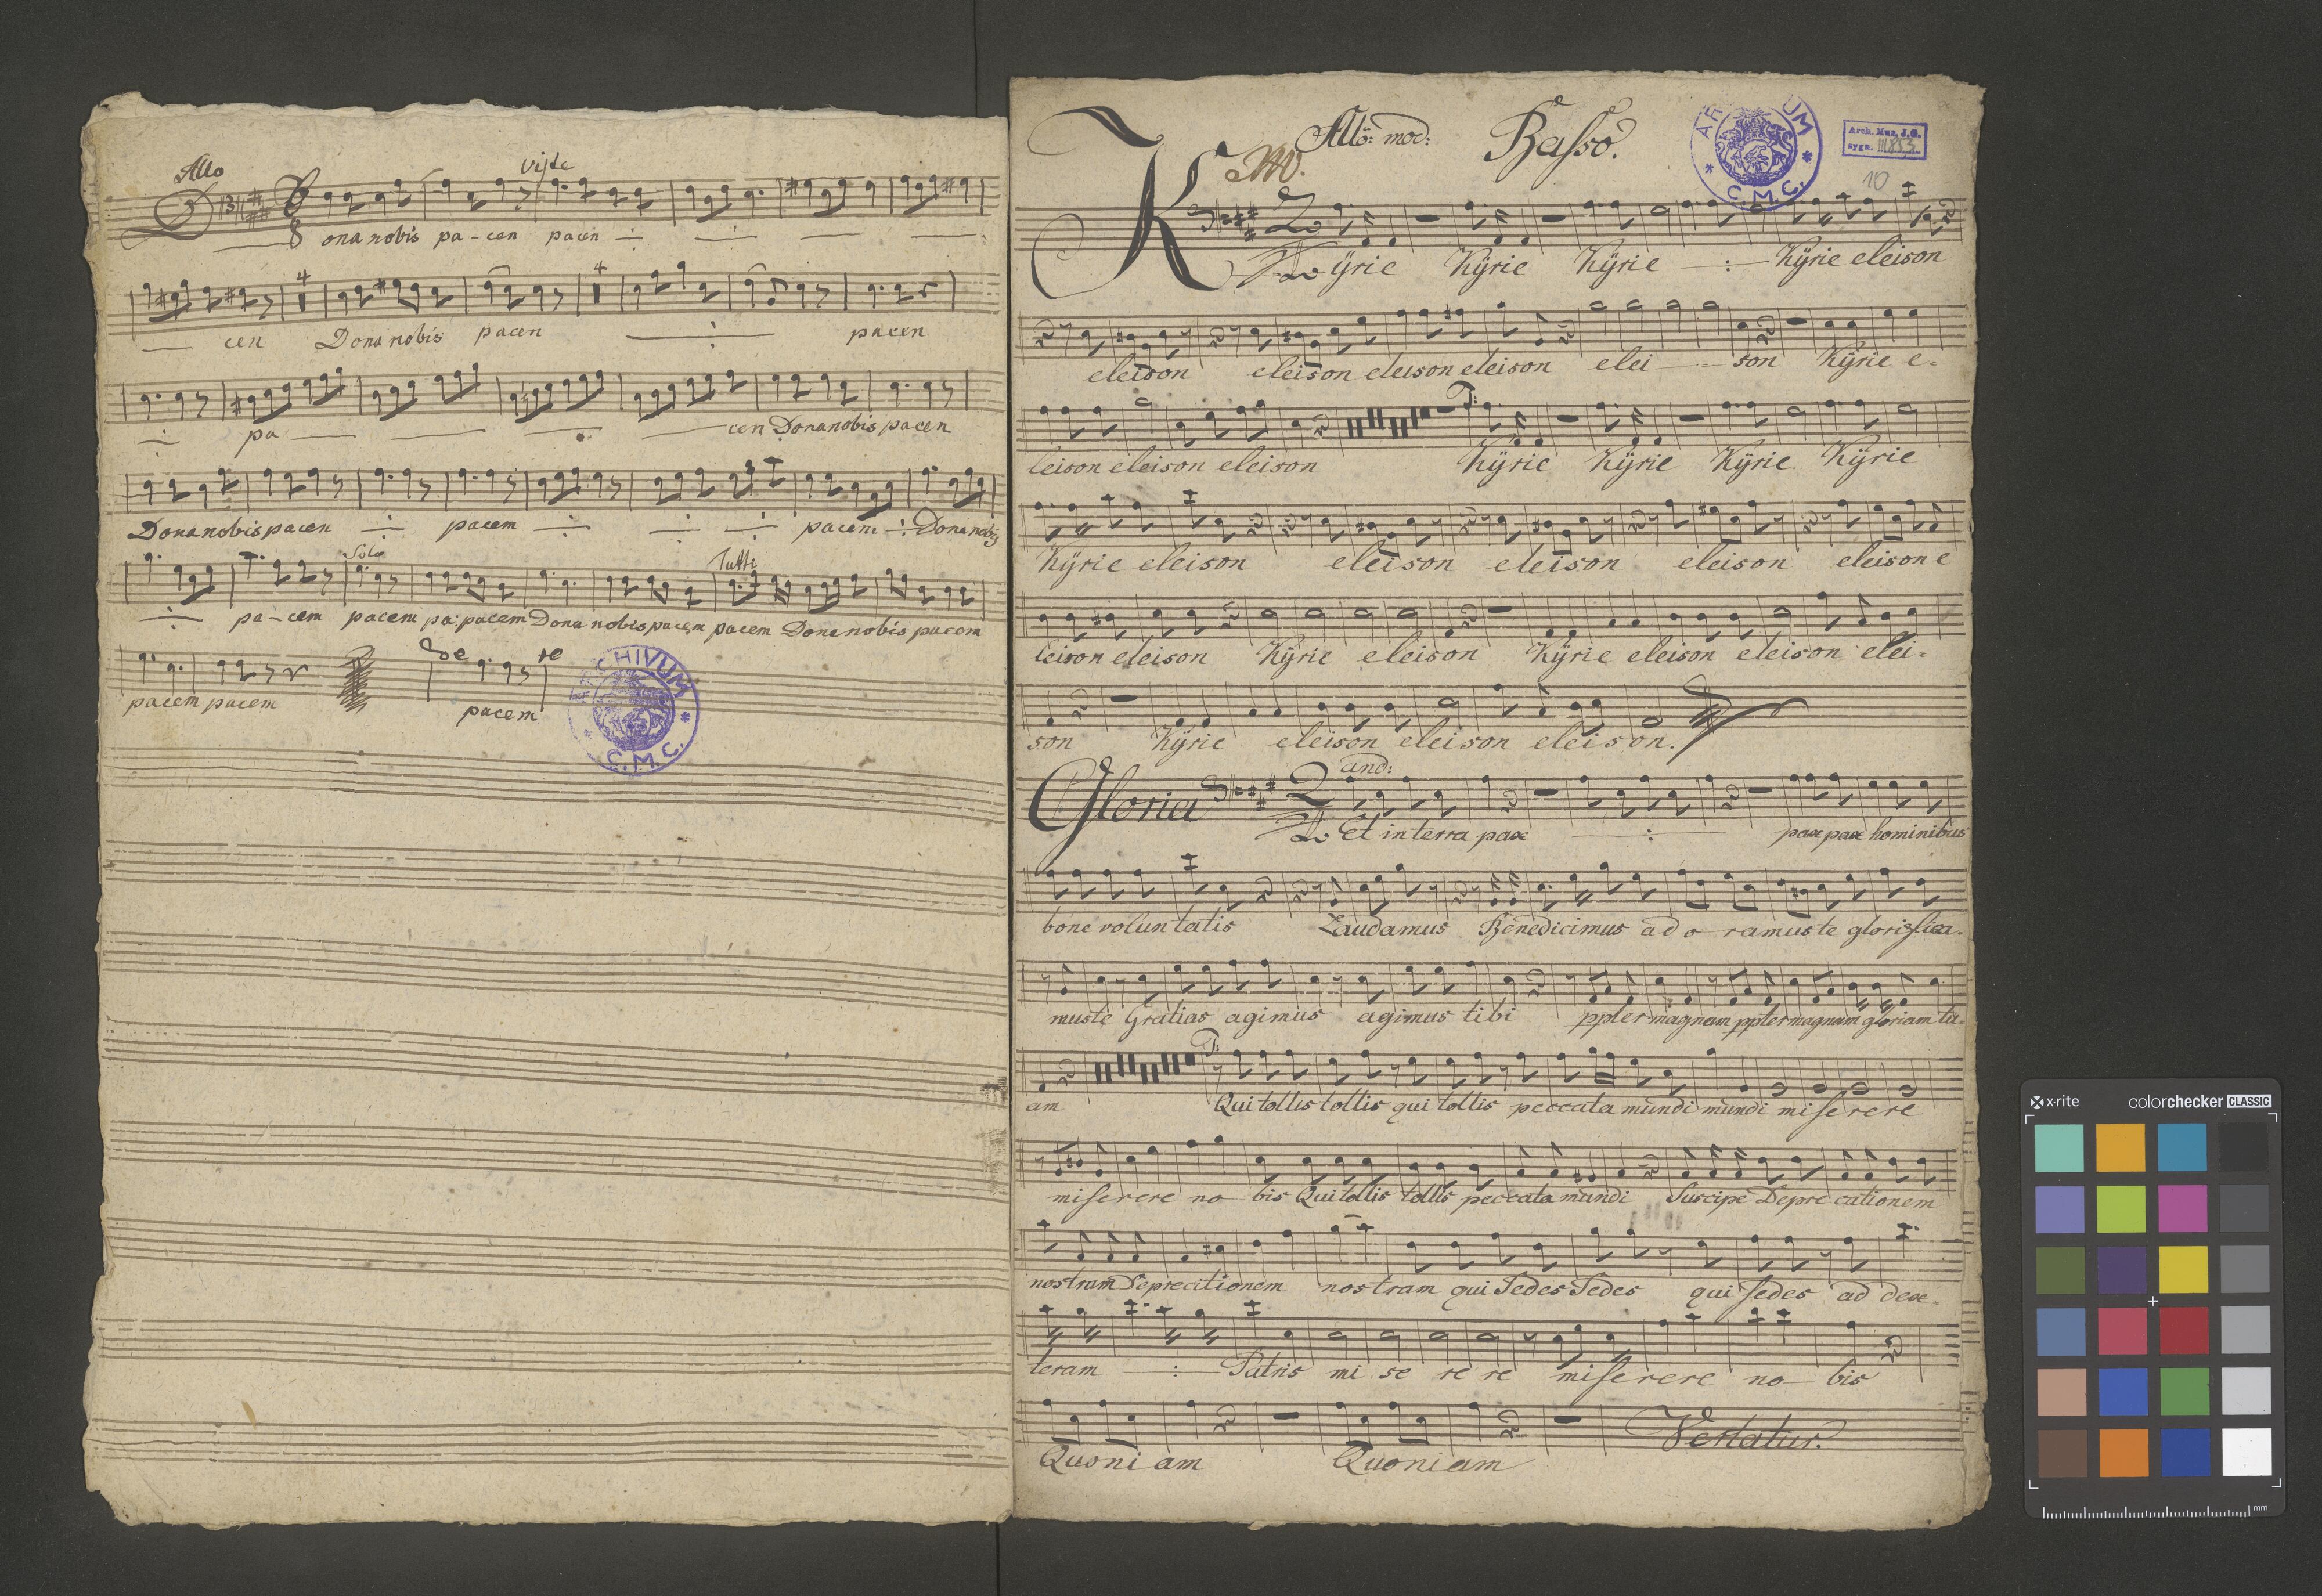 Allo
viste
8 ona nobis pa-cen pacen
4 4
cen Dona nobis pacen pacen
pa cen Dona nobis pacen
Dona nobis pacen pacem pacem Dona nobis
Solo Tutti
pa-cem pacem pa: pacem Dona nobis pacem pacem Dona nobis pacem
pacem pacem pacem
ARCHIVUM C.M.C.
Allo: mod: Basso.
ARCHIVUM C.M.C.
Arch. Muz. J.G.
sygn. III 853
10
Kyrie Kÿrie Kÿrie Kÿrie eleison
eleison eleison eleison eleison elei son Kÿrie e-
T:
leison eleison eleison Kÿrie Kÿrie Kÿrie Kÿrie
Kÿrie eleison eleison eleison eleison eleison e
leison eleison Kÿrie eleison Kÿrie eleison eleison elei-
son Kÿrie eleison eleison eleison.
and:
Gloria Et in terra pax pax pax hominibus
bone voluntatis Laudamus Benedicimus ado ramus te glorifica-
muste Gratias agimus agimus tibi ppter magnam ppter magnam gloriam tu-
T:
am Qui tollis tollis qui tollis peccata mundi mundi miserere
miserere no bis Qui tollis tollis peccata mundi Suscipe Depre cationem
nostram Deprecitionem nostram qui Sedes Sedes qui sedes ad dex-
teram Patris mi se re re miserere no bis
Quoni am Quoniam Vertatur.
x-rite colorchecker CLASSIC
mm